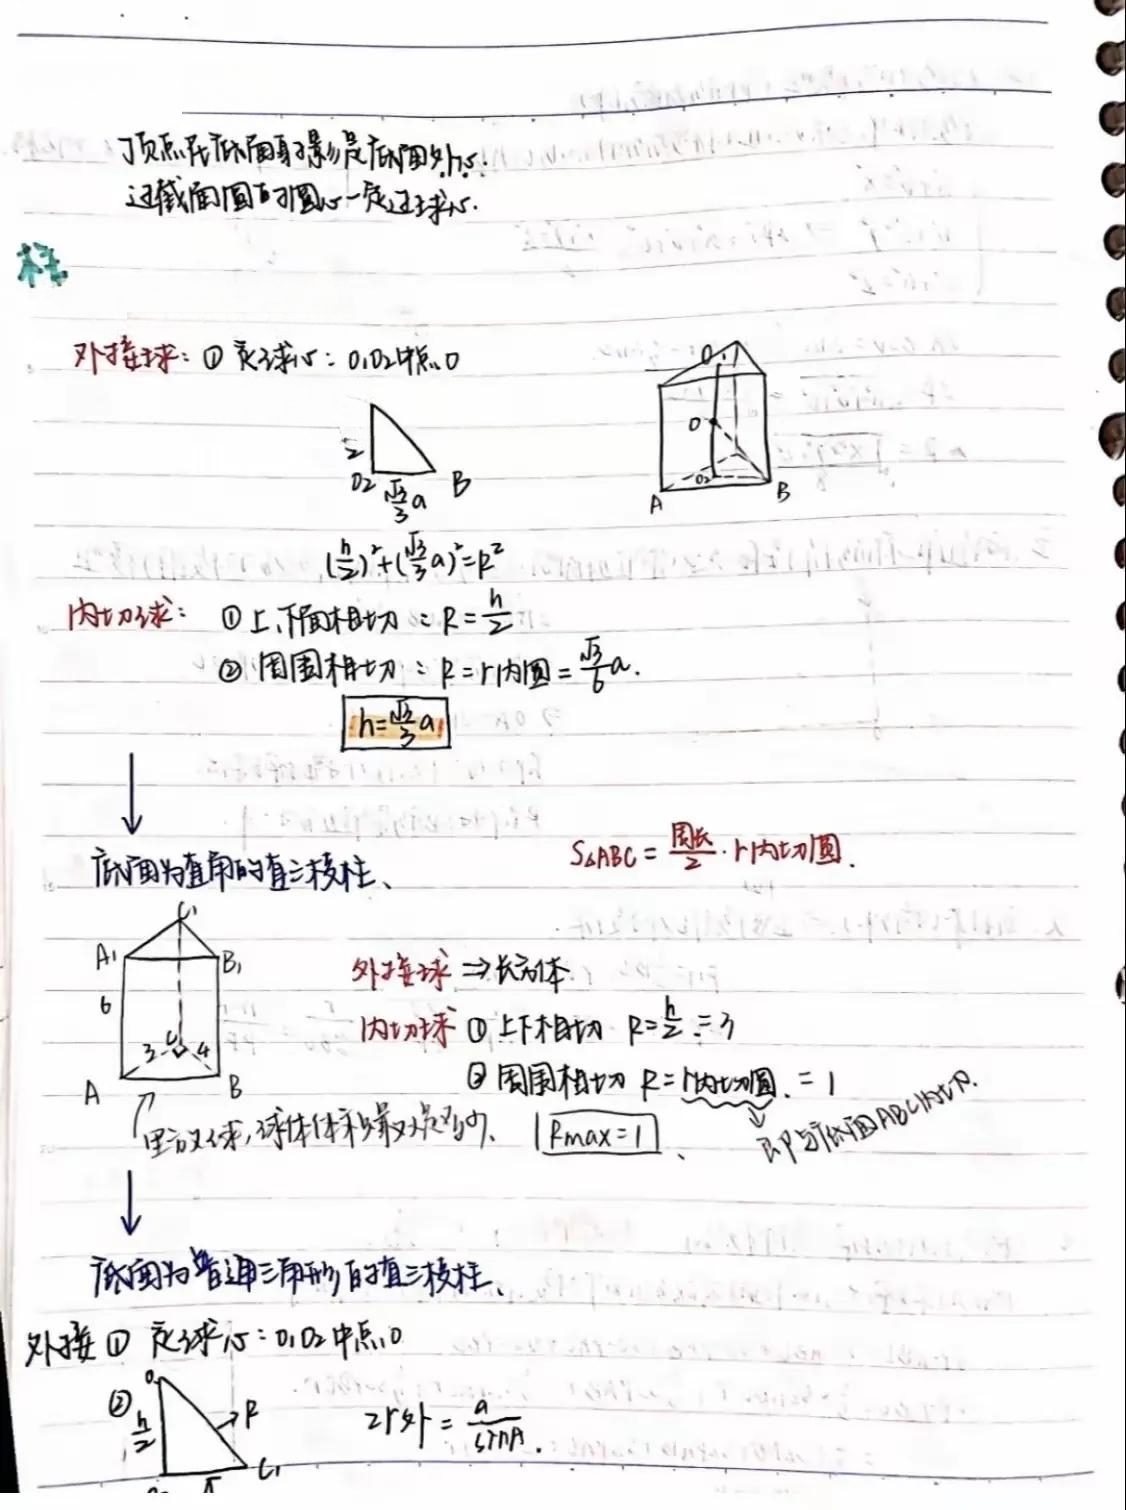 顶点在底面射影是底面外心.
过截面圆的圆心一定过球心.
柱
外接球: ① 定球心: O₁O₂中点O
h/2
O₂ √3/3 a B
O₁
O
O₂
A B
(h/2)²+(√3/3 a)²=R²
内切球: ① 上、下面相切 : R=h/2
② 周围相切 : R=r内圆=√3/6 a.
h=√3/3 a
底面为直角的直三棱柱、
S△ABC=周长/2·r内切圆.
C₁
A₁ B₁
6
3 C 4
A B
外接球 ⇒长方体
内切球 ① 上下相切 R=h/2=3
② 周围相切 R=r内切圆.=1
里放球,球体体积最大是多少、 Rmax=1、
即P与底面ABC内切.
底面为普通三角形的直三棱柱、
外接 ① 定球心: O₁O₂中点O
② O
h/2 R
r C₁
2r外=a/sinA.